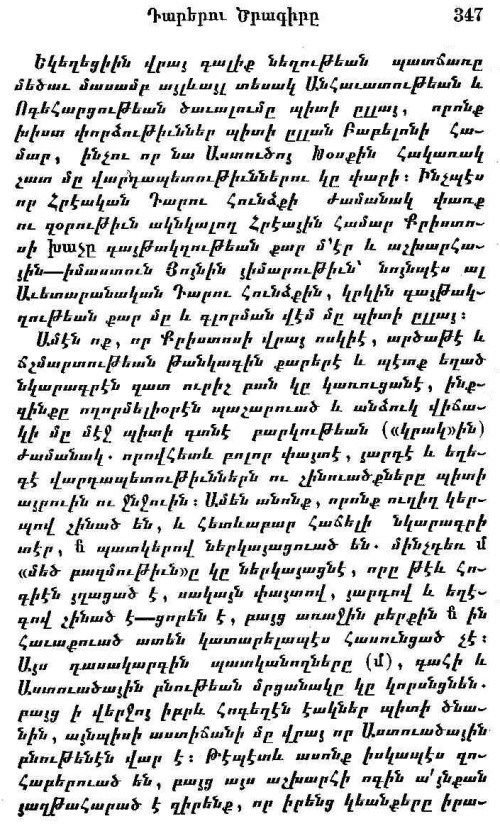 Դարերու Ծրագիրը 347
Եկեղեցիին վրայ գալիք նեղութեան պատճառը
մեծաւ մասամբ այլևայլ տեսակ Անհաւատութեան և
Ոգեհարցութեան ծաւալումը պիտի ըլլայ, որոնք
խիստ փորձութիւններ պիտի ըլլան Բաբելոնի հա-
մար, ինչու որ նա Աստուծոյ Խօսքին հակառակ
շատ մը վարդապետութիւններու կը փարի։ Ինչպէս
որ Հրէական Դարու Հունձքի ժամանակ փառք
ու զօրութիւն ակնկալող Հրէային համար Քրիստո-
սի խաչը գայթակղութեան քար մ՚էր և աշխարհա-
յին—իմաստուն Յոյնին յիմարութիւն՝ նոյնպէս ալ
Աւետարանական Դարու Հունձքին, կրկին գայթակ-
ղութեան քար մը և գլորման վէմ մը պիտի ըլլայ։
Ամէն ոք, որ Քրիստոսի վրայ ոսկիէ, արծաթէ և
ճշմարտութեան թանկագին քարերէ և պէտք եղած
նկարագրէն զատ ուրիշ բան կը կառուցանէ, ինք-
զինքը ողորմելիօրէն պաշարուած և անձուկ վիճա-
կի մը մէջ պիտի գտնէ բարկութեան («կրակ»ին)
ժամանակ. որովհետև բոլոր փայտէ, յարդէ և եղե-
գէ վարդապետութիւններն ու շինուածքները պիտի
այրուին ու ջնջուին։ Ամեն անոնք, որոնք ուղիղ կեր-
պով շինած են, և հետևաբար հաճելի նկարագրի
տէր, և պատկերով ներկայացուած են. մինչդեռ մ
«մեծ բազմութիւն»ը կը ներկայացնէ, որը թէև հո-
գիէն յղացած է, սակայն փայտով, յարդով և եղէ-
գով շինած է—ցորեն է, բայց առաջին բերքին և ին
հաւաքուած ատեն կատարելապէս հասունցած չէ։
Այս դասակարգին պատկանողները (մ), գահի և
Աստուածային բնութեան մրցանակը կը կորսնցնեն.
բայց ի վերջոյ իբրև հոգեղէն էակներ պիտի ծնա-
նին, այնպիսի աստիճանի մը վրայ որ Աստուածային
բնութենէն վար է։ Թէպէտև ասոնք իսկապէս զո-
հաբերուած են, բայց այս աշխարհի ոգին ա՛յնքան
յաղթահարած է զիրենք, որ իրենց կեանքերը իրա-